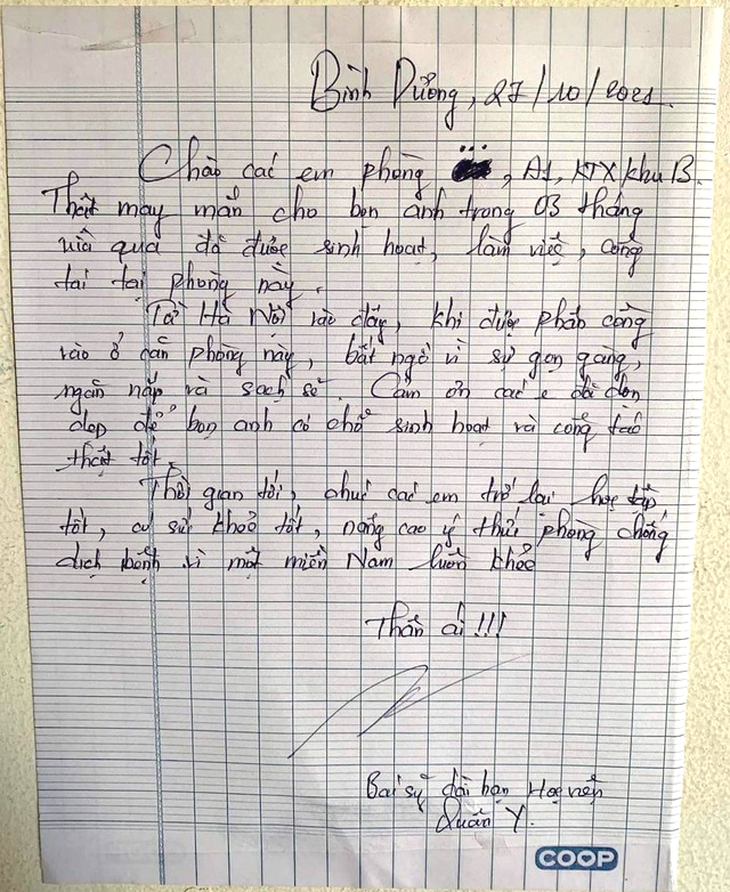 Bình Dương, 27/10/2021.
Chào các em phòng ..., A1, KTX khu B.
Thật may mắn cho bọn anh trong 03 tháng
vừa qua đã được sinh hoạt, làm việc, công
tác tại phòng này.
Từ Hà Nội vào đây, khi được phân công
vào ở căn phòng này, bất ngờ vì sự gọn gàng,
ngăn nắp và sạch sẽ. Cảm ơn các e đã dọn
dẹp để bọn anh có chỗ sinh hoạt và công tác
thật tốt.
Thời gian tới, chúc các em trở lại học tập
tốt, có sức khoẻ tốt, nâng cao ý thức phòng chống
dịch bệnh vì một miền Nam luôn khoẻ
Thân ái !!!
Bác sỹ dài hạn Học viện
Quân Y.
COOP